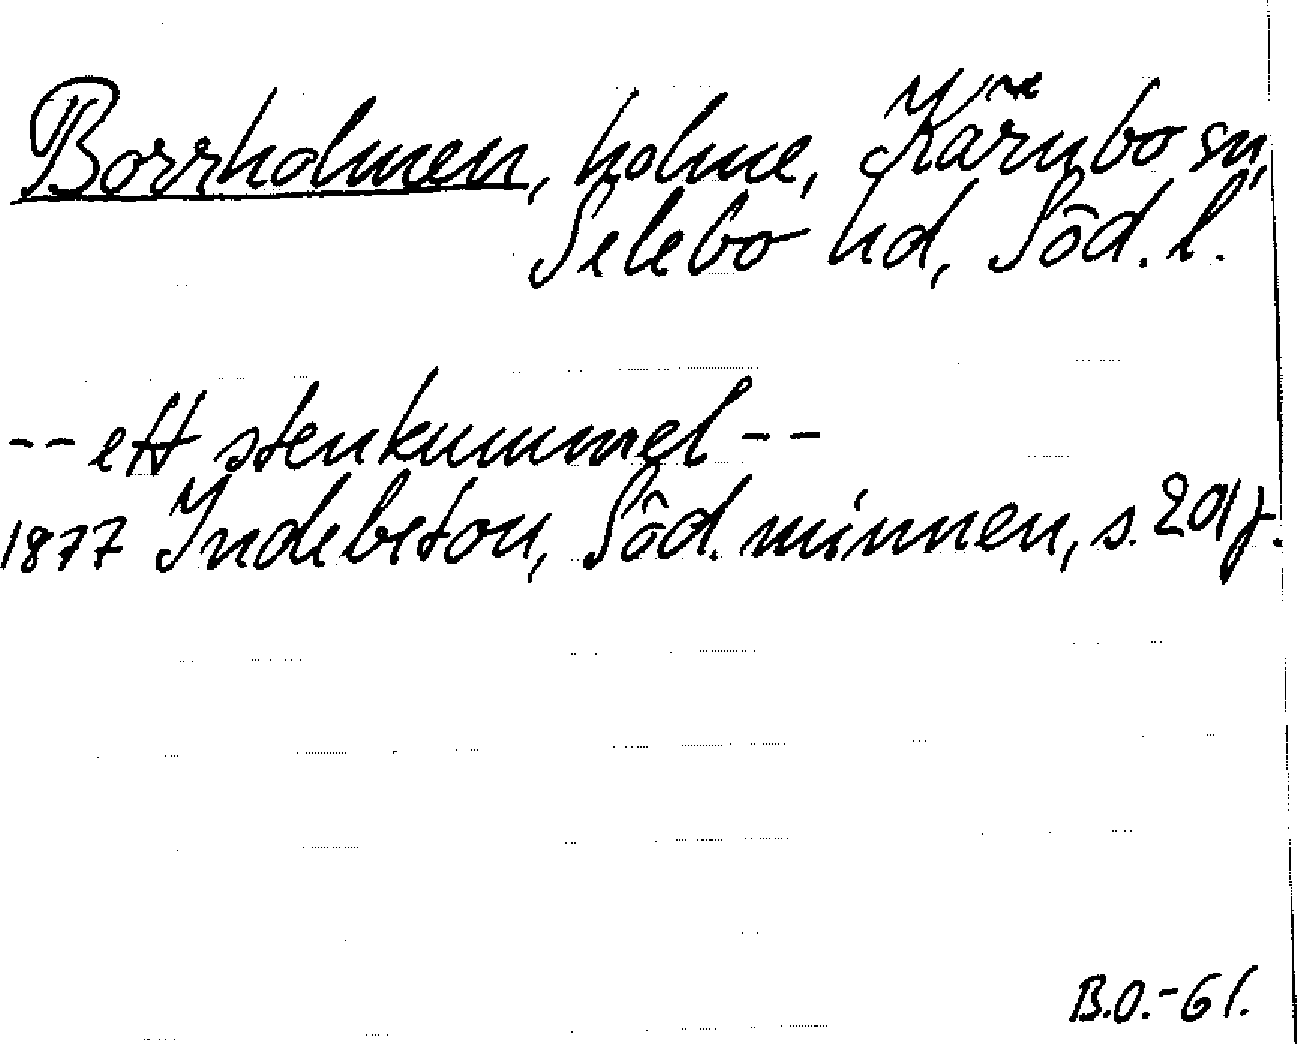 Borrholmen, holme, Kärnbo sn,
Selebo hd, Söd. l.
-- ett stenkummel --
1877 Indebetou, Söd. minnen, s. 201 f.
B.O.-61.